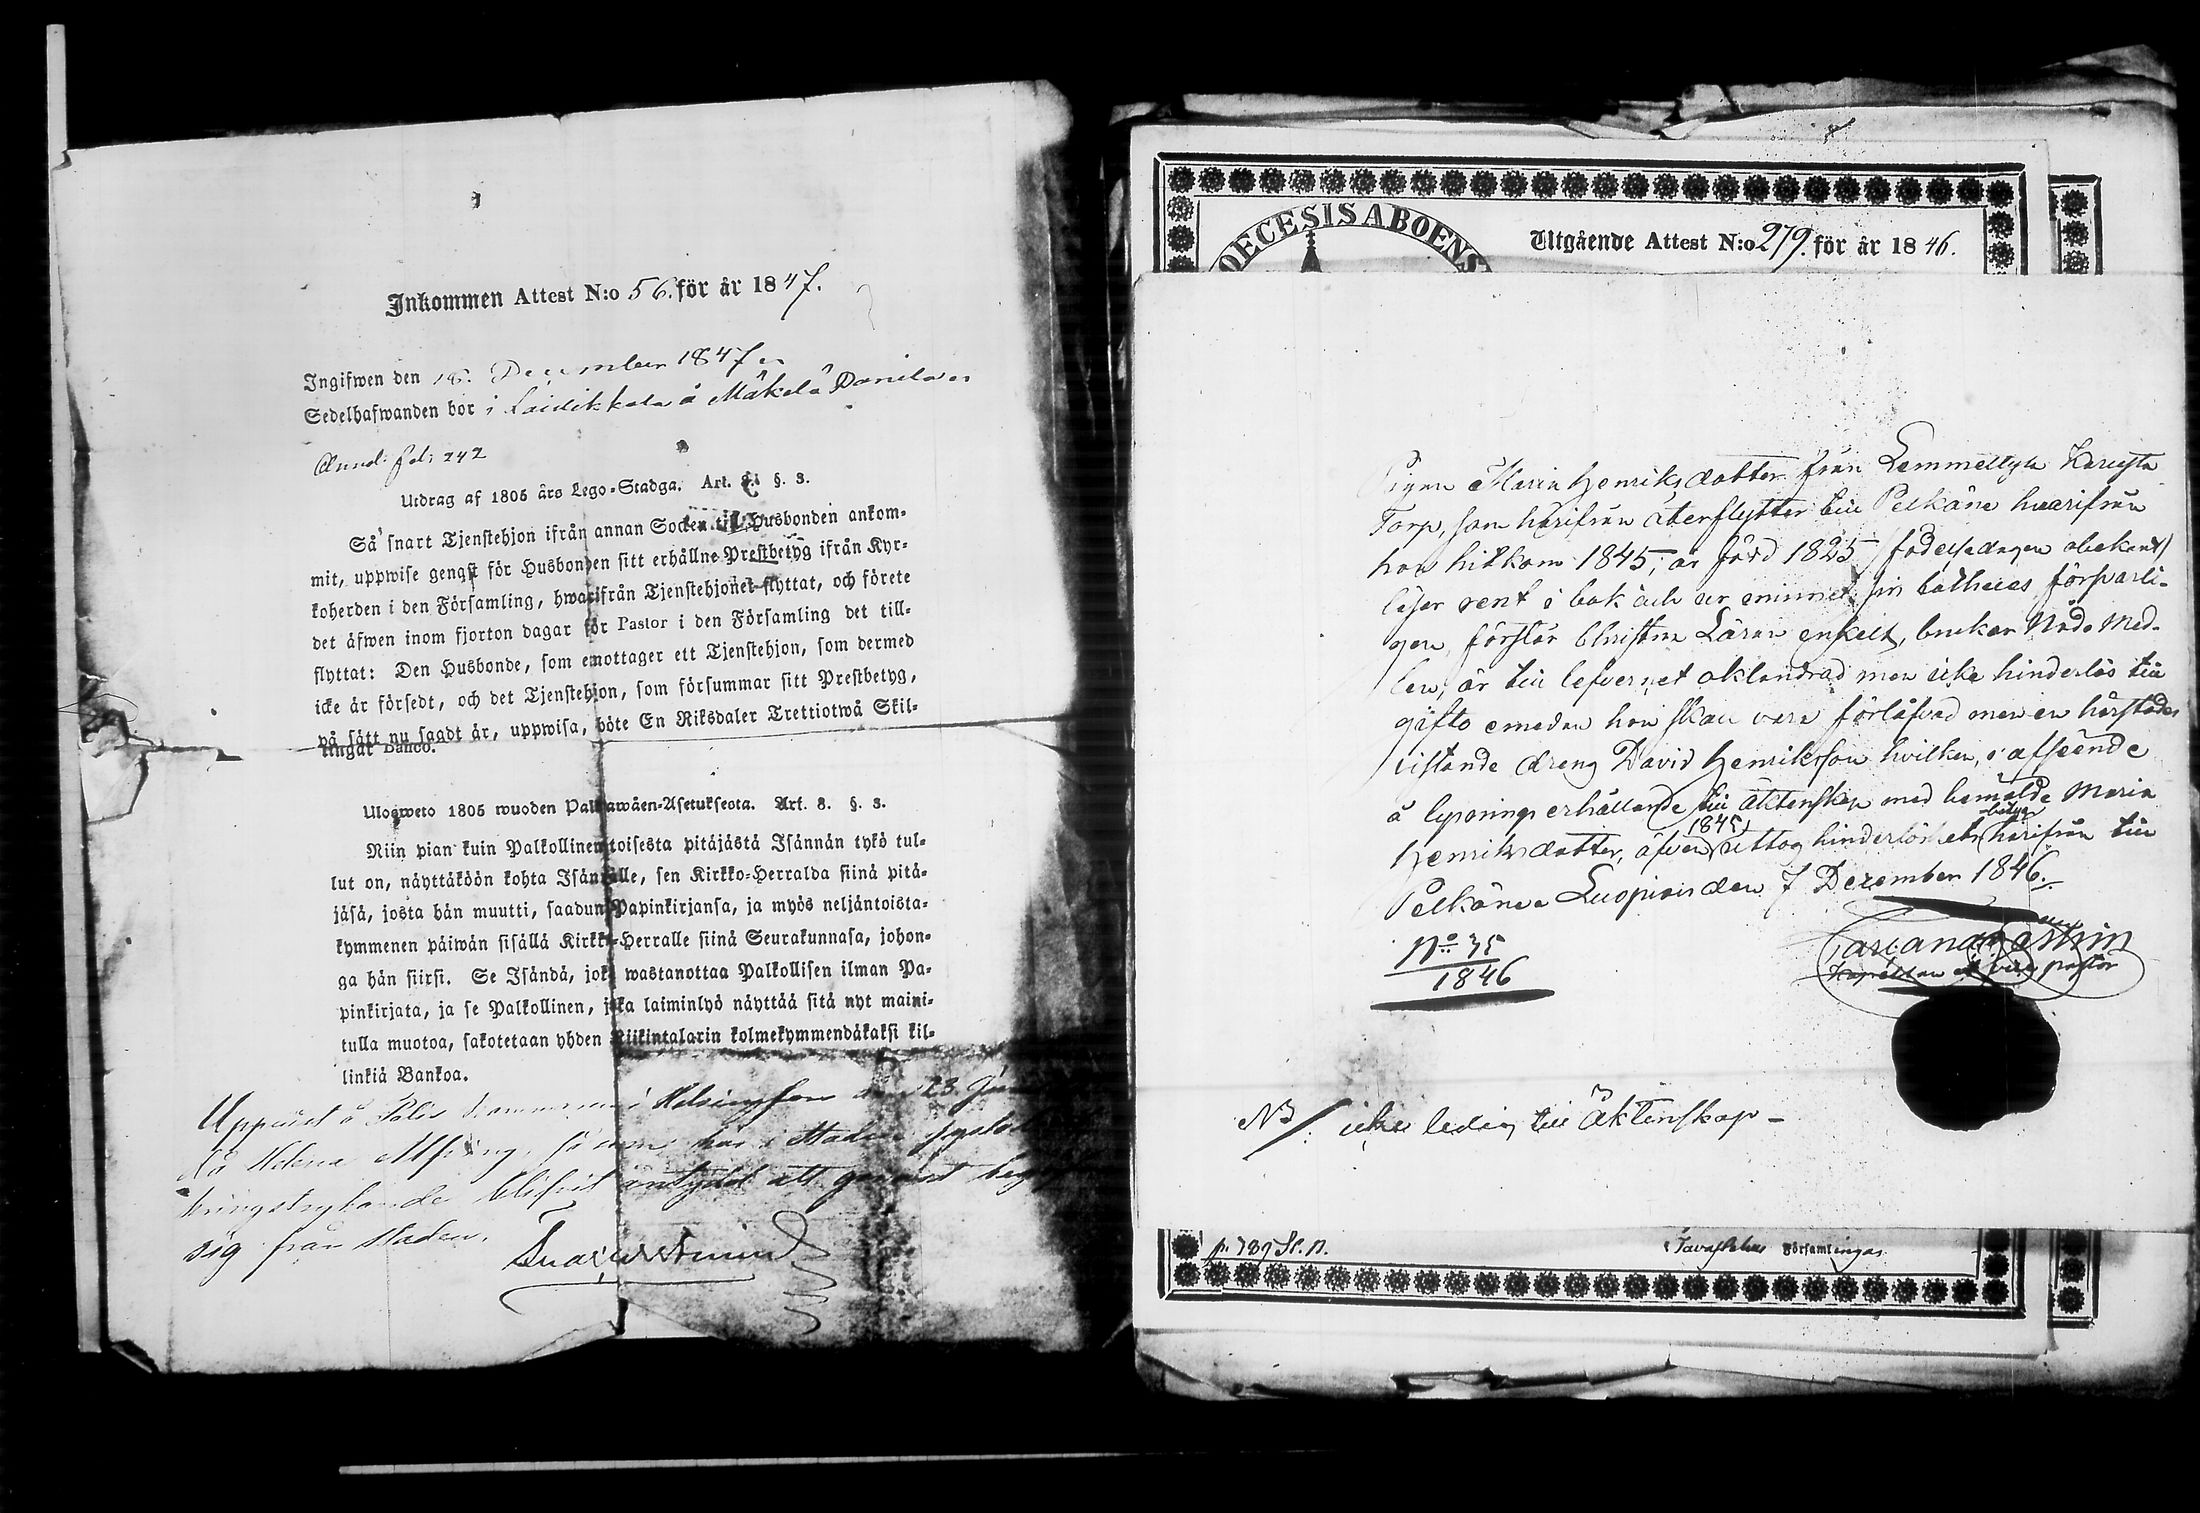 Inkommen Attest N:o 56. för år 1847.
Ingifwen den 18. December 1847
Sedelhafwanden bor i Laidikkala å Mäkelä Danila
Annot: fol: 242
Utdrag af 1805 års Lego-Stadga. Art. 8. §. 3.
Så snart Tjenstehjon ifrån annan Socken till Husbonden ankom-
mit, uppwise genast för Husbonden sitt erhållne Prestbetyg ifrån Kyr-
koherden i den Församling, hwarifrån Tjenstehjonet flyttat, och förete
det äfwen inom fjorton dagar för Pastor i den Församling det till-
flyttat: Den Husbonde, som emottager ett Tjenstehjon, som dermed
icke är försedt, och det Tjenstehjon, som försummar sitt Prestbetyg,
på sätt nu sagdt är, uppwisa, böte En Riksdaler Trettiotwå Skil-
lingar Banco.
Ulosweto 1805 wuoden Palkawäen-Asetuksesta. Art. 8. §. 3.
Niin pian kuin Palkollinen toisesta pitäjästä Isännän tykö tul-
lut on, näyttäköön kohta Isännälle, sen Kirkko-Herralda siinä pitä-
jäsä, josta hän muutti, saadun Papinkirjansa, ja myös neljäntoista-
kymmenen päiwän sisällä Kirkko-Herralle siinä Seurakunnasa, johon-
ga hän siirsi. Se Isändä, joka wastanottaa Palkollisen ilman Pa-
pinkirjata, ja se Palkollinen, joka laiminlyö näyttää sitä nyt maini-
tulla muotoa, sakotetaan yhden Riikintalarin kolmekymmendäkaksi kil-
linkiä Bankoa.
Uppvist å Polis Kammaren i Helsingfors den 23. Juni
då Helena Alfving, såsom här i Staden sysslolöst
kringstrykande blifvit antydd att genast begifva
sig från Staden.
DIOECESIS ABOENS
Utgående Attest N:o 279. för år 1846.
Pigan Maria Henriksdotter från Lemmettylä Karusta
Torp, som härifrån återflyttar till Pelkäne hvarifrån
hon hitkom 1845, är född 1825 (födelsedagen obekant)
läser rent i bok och ur minnet sin Catheces förfarli-
gen, förstår Christna Läran enkelt, brukar Nåde Med-
len, är till lefvernet oklandrad men icke hinderlös till
gifte emedan hon skall vara förlofvad men en härstädes
vistande dreng David Henriksson hvilken, i afseende
å lysnings erhållande till äktenskap med bemälde Maria
Henriksdotter, äfven 1845 uttog hinderlöshets betyg härifrån till
Pelkäne. Luopiois den 7 Dezember 1846.
No 35
1846
Kapellan et vice pastor
NB/: icke ledig till Äktenskap -
p. 789 St. N.
Tavastehus Församlingar